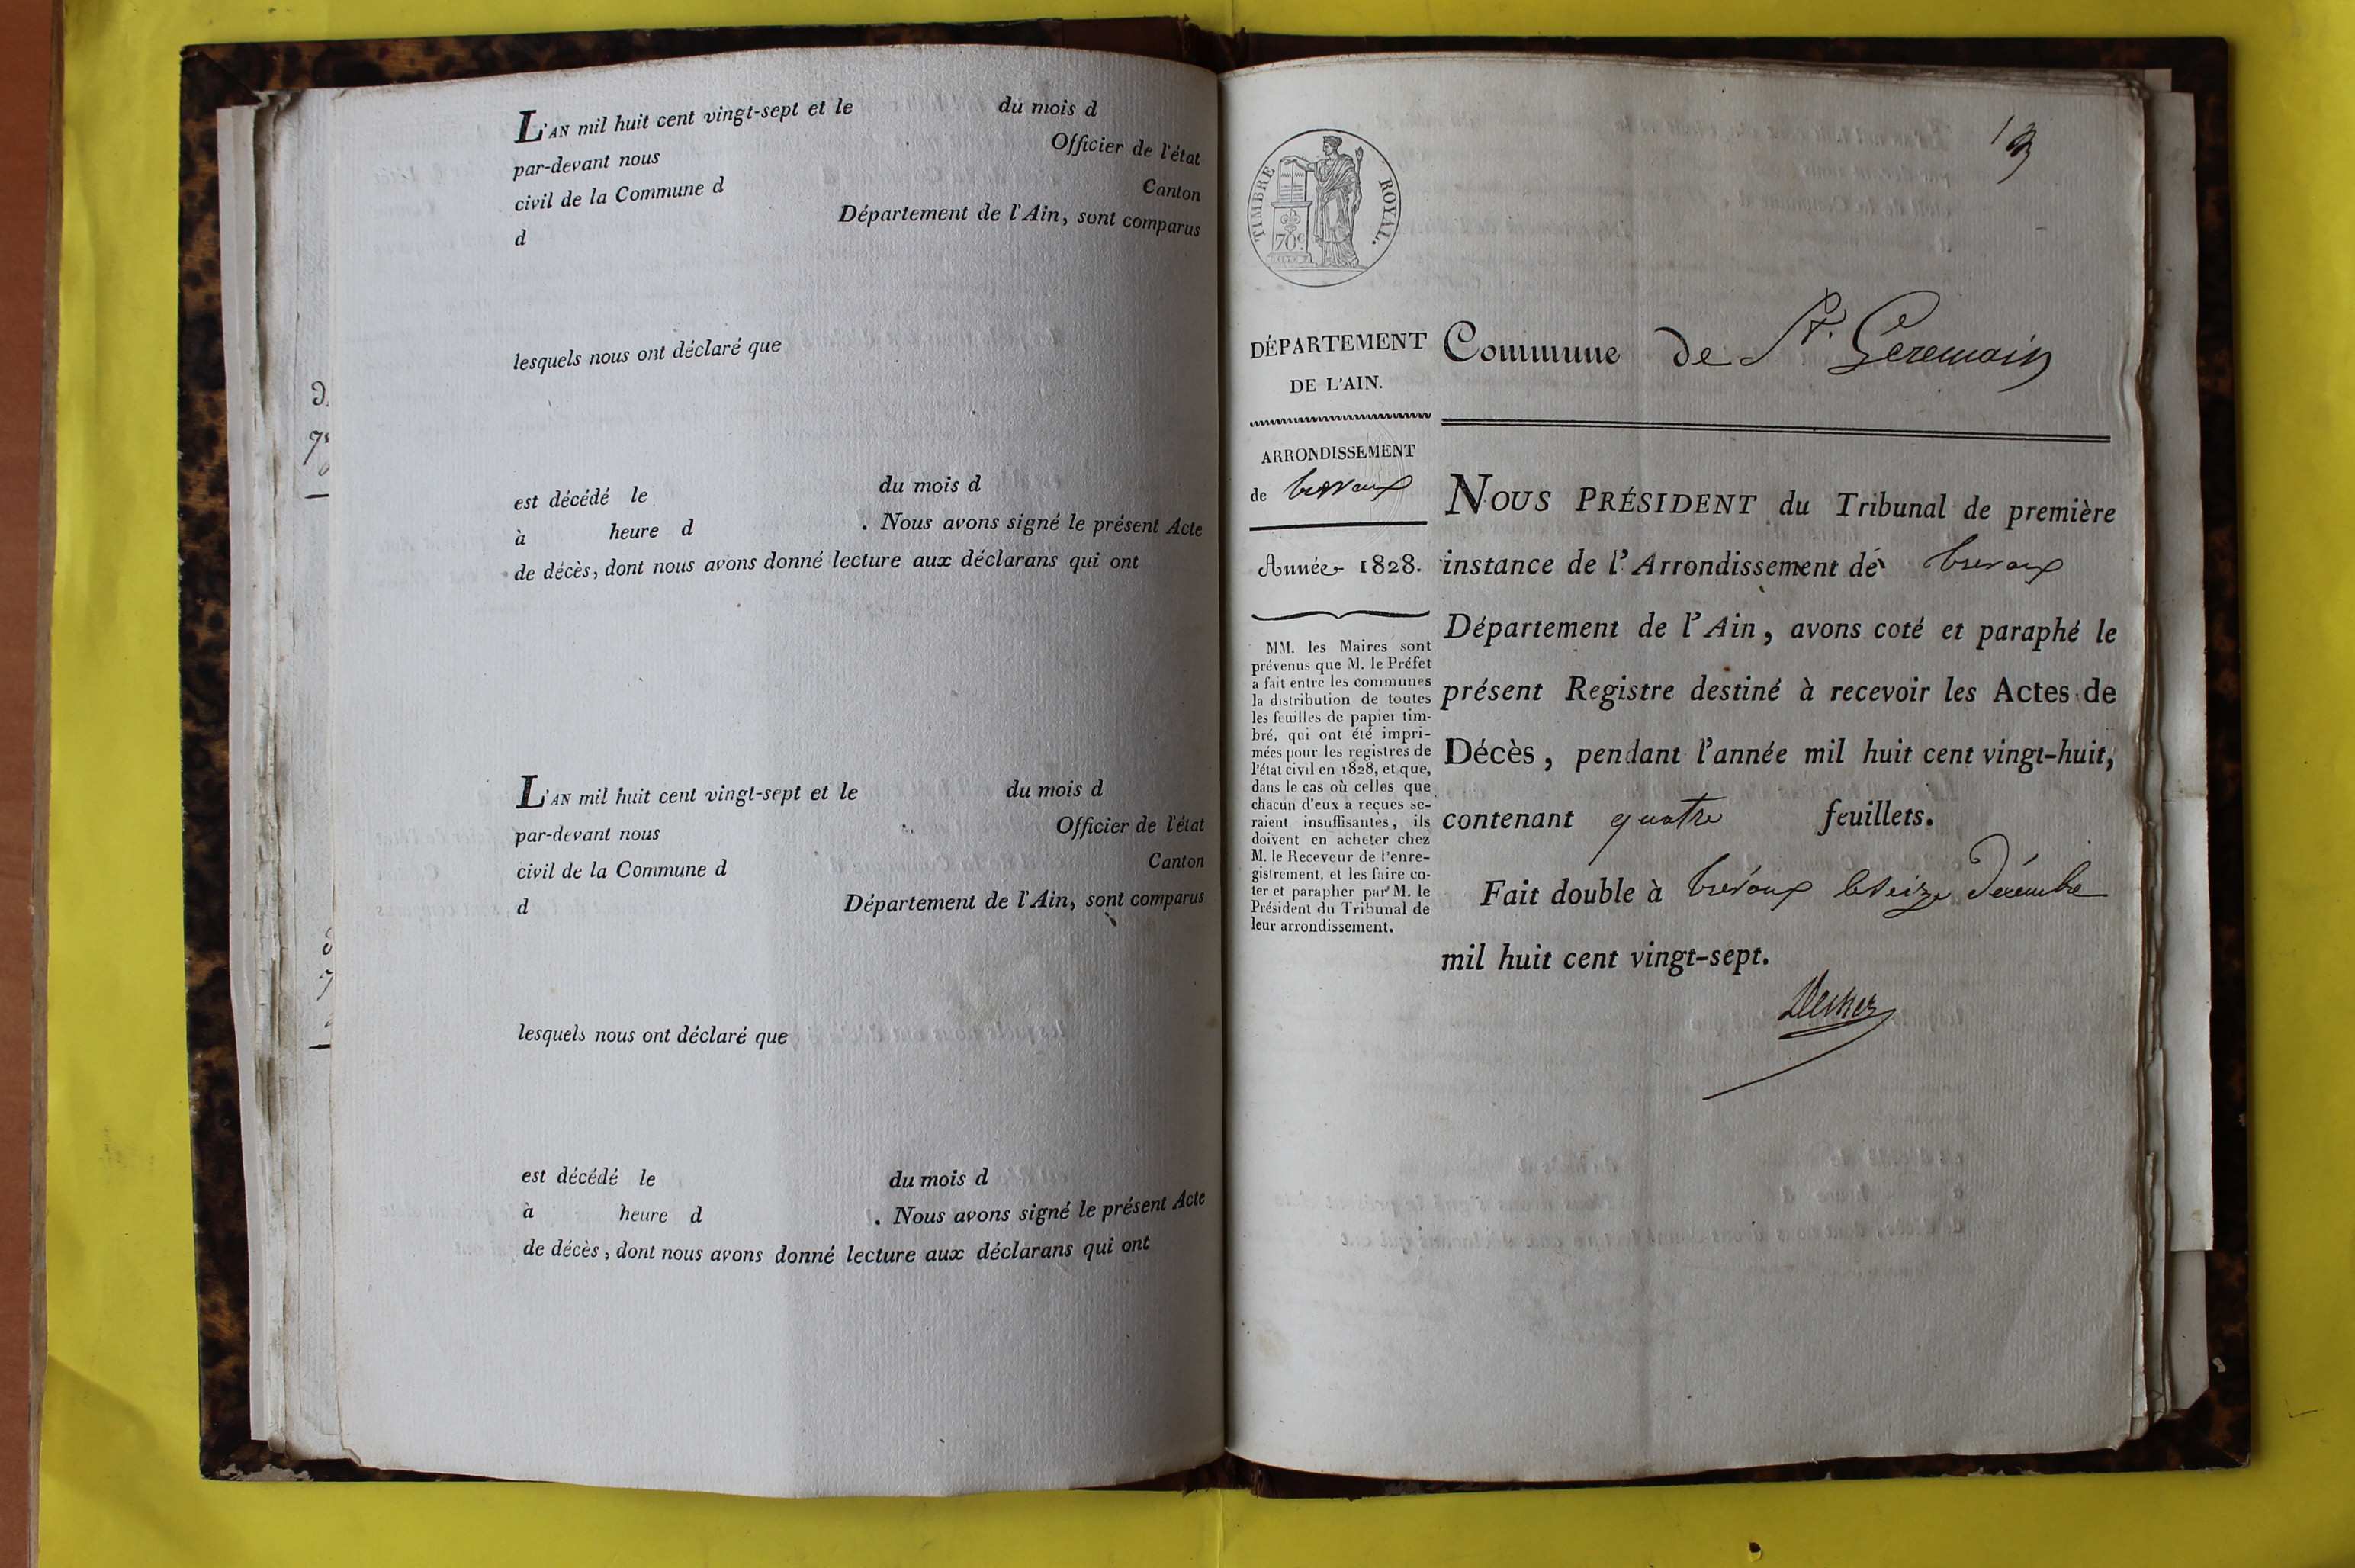 L'AN mil huit cent vingt-sept et le du mois d
par-devant nous Officier de l'état
civil de la Commune d Canton
d Département de l'Ain, sont comparus
lesquels nous ont déclaré que
est décédé le du mois d
à heure d . Nous avons signé le présent Acte
de décès, dont nous avons donné lecture aux déclarans qui ont
L'AN mil huit cent vingt-sept et le du mois d
par-devant nous Officier de l'état
civil de la Commune d Canton
d Département de l'Ain, sont comparus
lesquels nous ont déclaré que
est décédé le du mois d
à heure d . Nous avons signé le présent Acte
de décès, dont nous avons donné lecture aux déclarans qui ont
TIMBRE ROYAL.
70c.
DÉPARTEMENT
DE L'AIN.
ARRONDISSEMENT
de trevoux
Année 1828.
MM. les Maires sont
prévenus que M. le Préfet
a fait entre les communes
la distribution de toutes
les feuilles de papier tim-
bré, qui ont été impri-
mées pour les registres de
l'état civil en 1828, et que,
dans le cas où celles que
chacun d'eux a reçues se-
raient insuffisantes, ils
doivent en acheter chez
M. le Receveur de l'enre-
gistrement, et les faire co-
ter et parapher par M. le
Président du Tribunal de
leur arrondissement.
Commune de St. Germain
NOUS PRÉSIDENT du Tribunal de première
instance de l'Arrondissement de trevoux
Département de l'Ain, avons coté et paraphé le
présent Registre destiné à recevoir les Actes de
Décès, pendant l'année mil huit cent vingt-huit,
contenant quatre feuillets.
Fait double à trévoux le seize Décembre
mil huit cent vingt-sept.